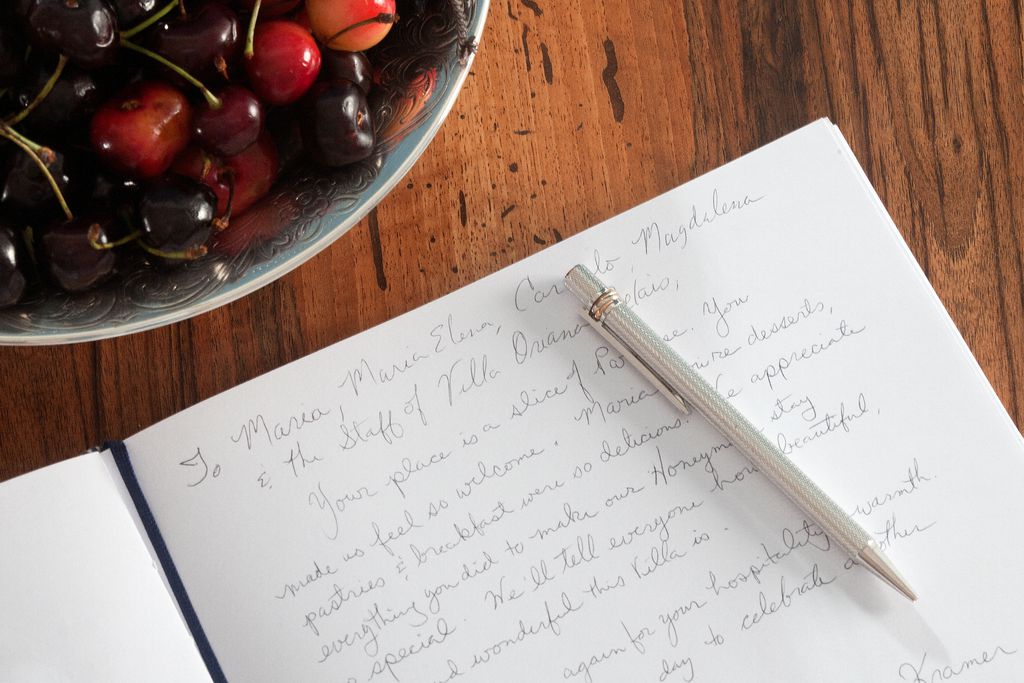 To Maria, Maria Elena, Magdalena
& the Staff of Villa
Your place is a slice of You
made us feel so welcome. Maria desserts,
pastries & breakfast were so delicious. appreciate
everything you did to make our Honeymoon stay
special. We'll tell everyone how beautiful,
wonderful this Villa is.
again for your hospitality warmth.
day to celebrate
Kramer